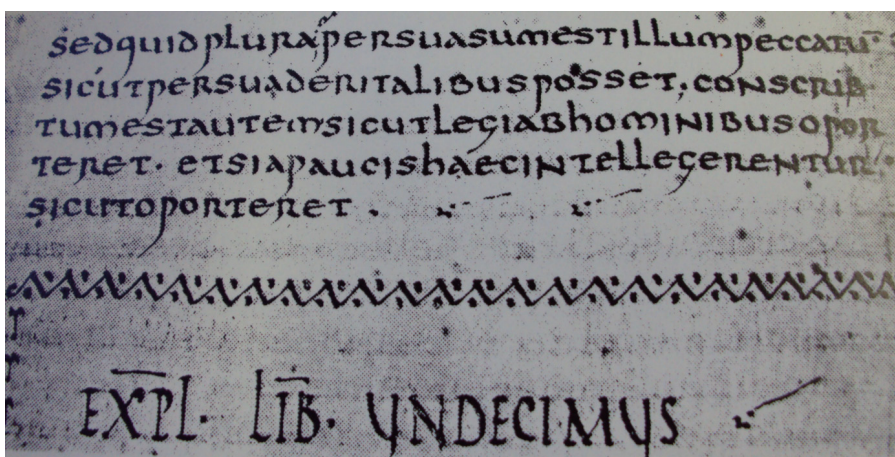 sedquidplurapersuasumestillumpeccatū
sicutpersuaderitalibusposset, conscrib
tumestautemsicutlegiabhominibusopor
teret. etsiapaucishaecintellegerentur
sicutoporteret.
EXPL. LIB. UNDECIMUS